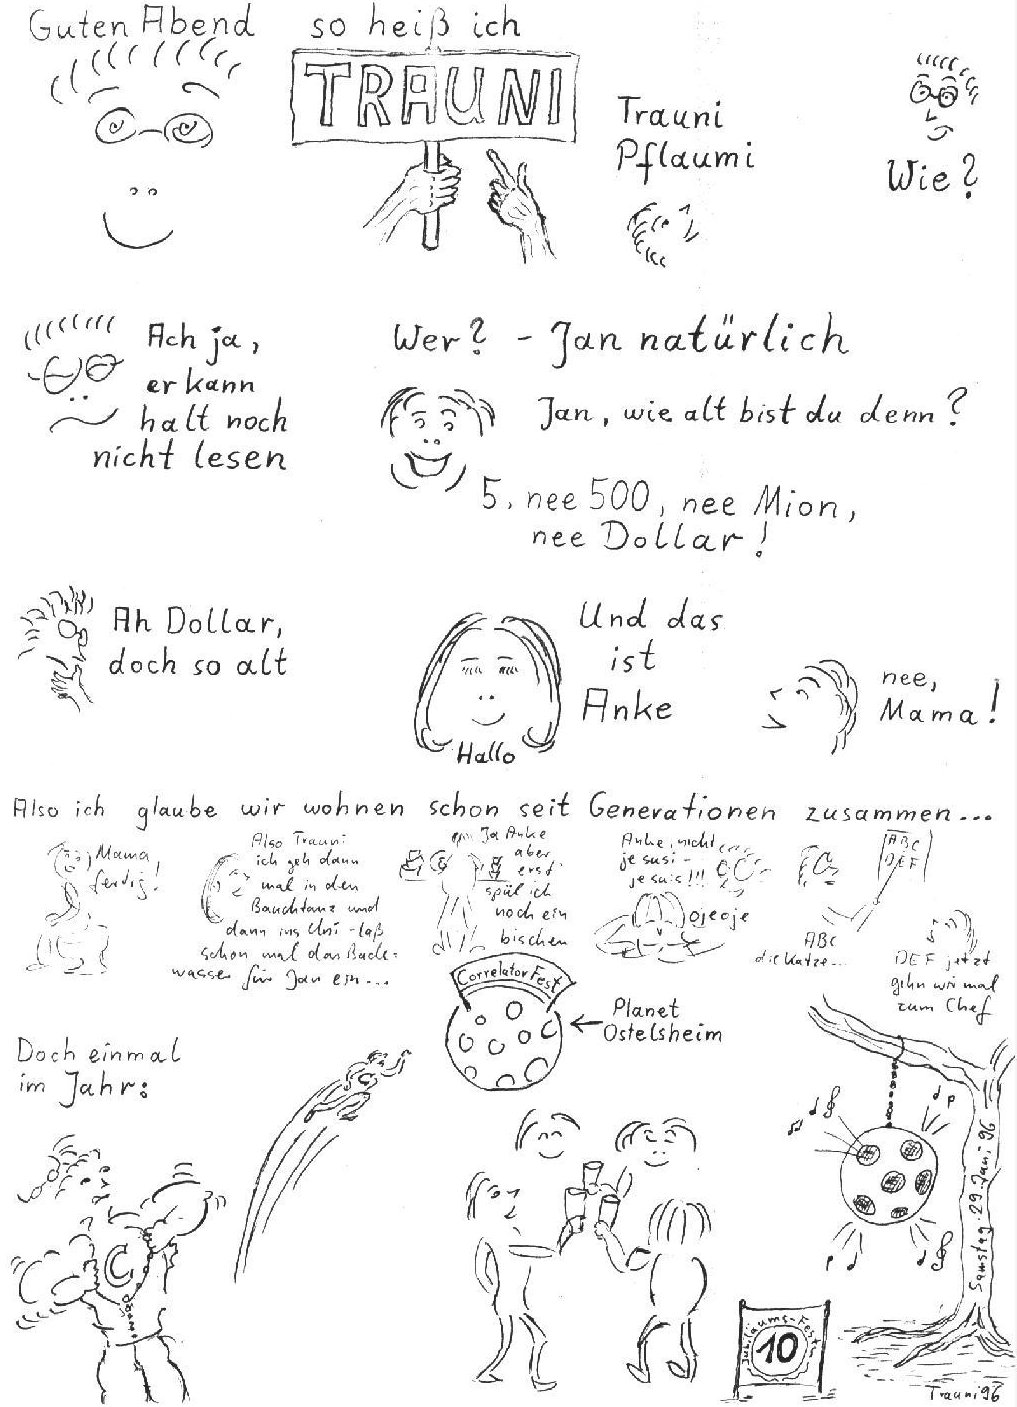 Guten Abend so heiß ich
TRAUNI
Trauni
Pflaumi
Wie?
Ach ja,
er kann
halt noch
nicht lesen
Wer? - Jan natürlich
Jan, wie alt bist du denn?
5, nee 500, nee Mion,
nee Dollar!
Ah Dollar,
doch so alt
Hallo
Und das
ist
Anke
nee,
Mama!
Also ich glaube wir wohnen schon seit Generationen zusammen...
Mama,
fertig!
Also Trauni
ich geh dann
mal in den
Bauchtanz und
dann ins Uni - laß
schon mal das Bade-
wasser für Jan ein...
Ja Anke
aber
erst
spül ich
noch ein
bischen
Anke, nicht
je susi -
je suis!!!
ojeoje
ABC
DEF
ABC
die Katze...
DEF jetzt
gehn wir mal
zum Chef
Correlator Fest
Planet
Ostelsheim
Doch einmal
im Jahr:
C
Samstag 29. Juni 96
Jubiläums-Fest
10
Trauni 96